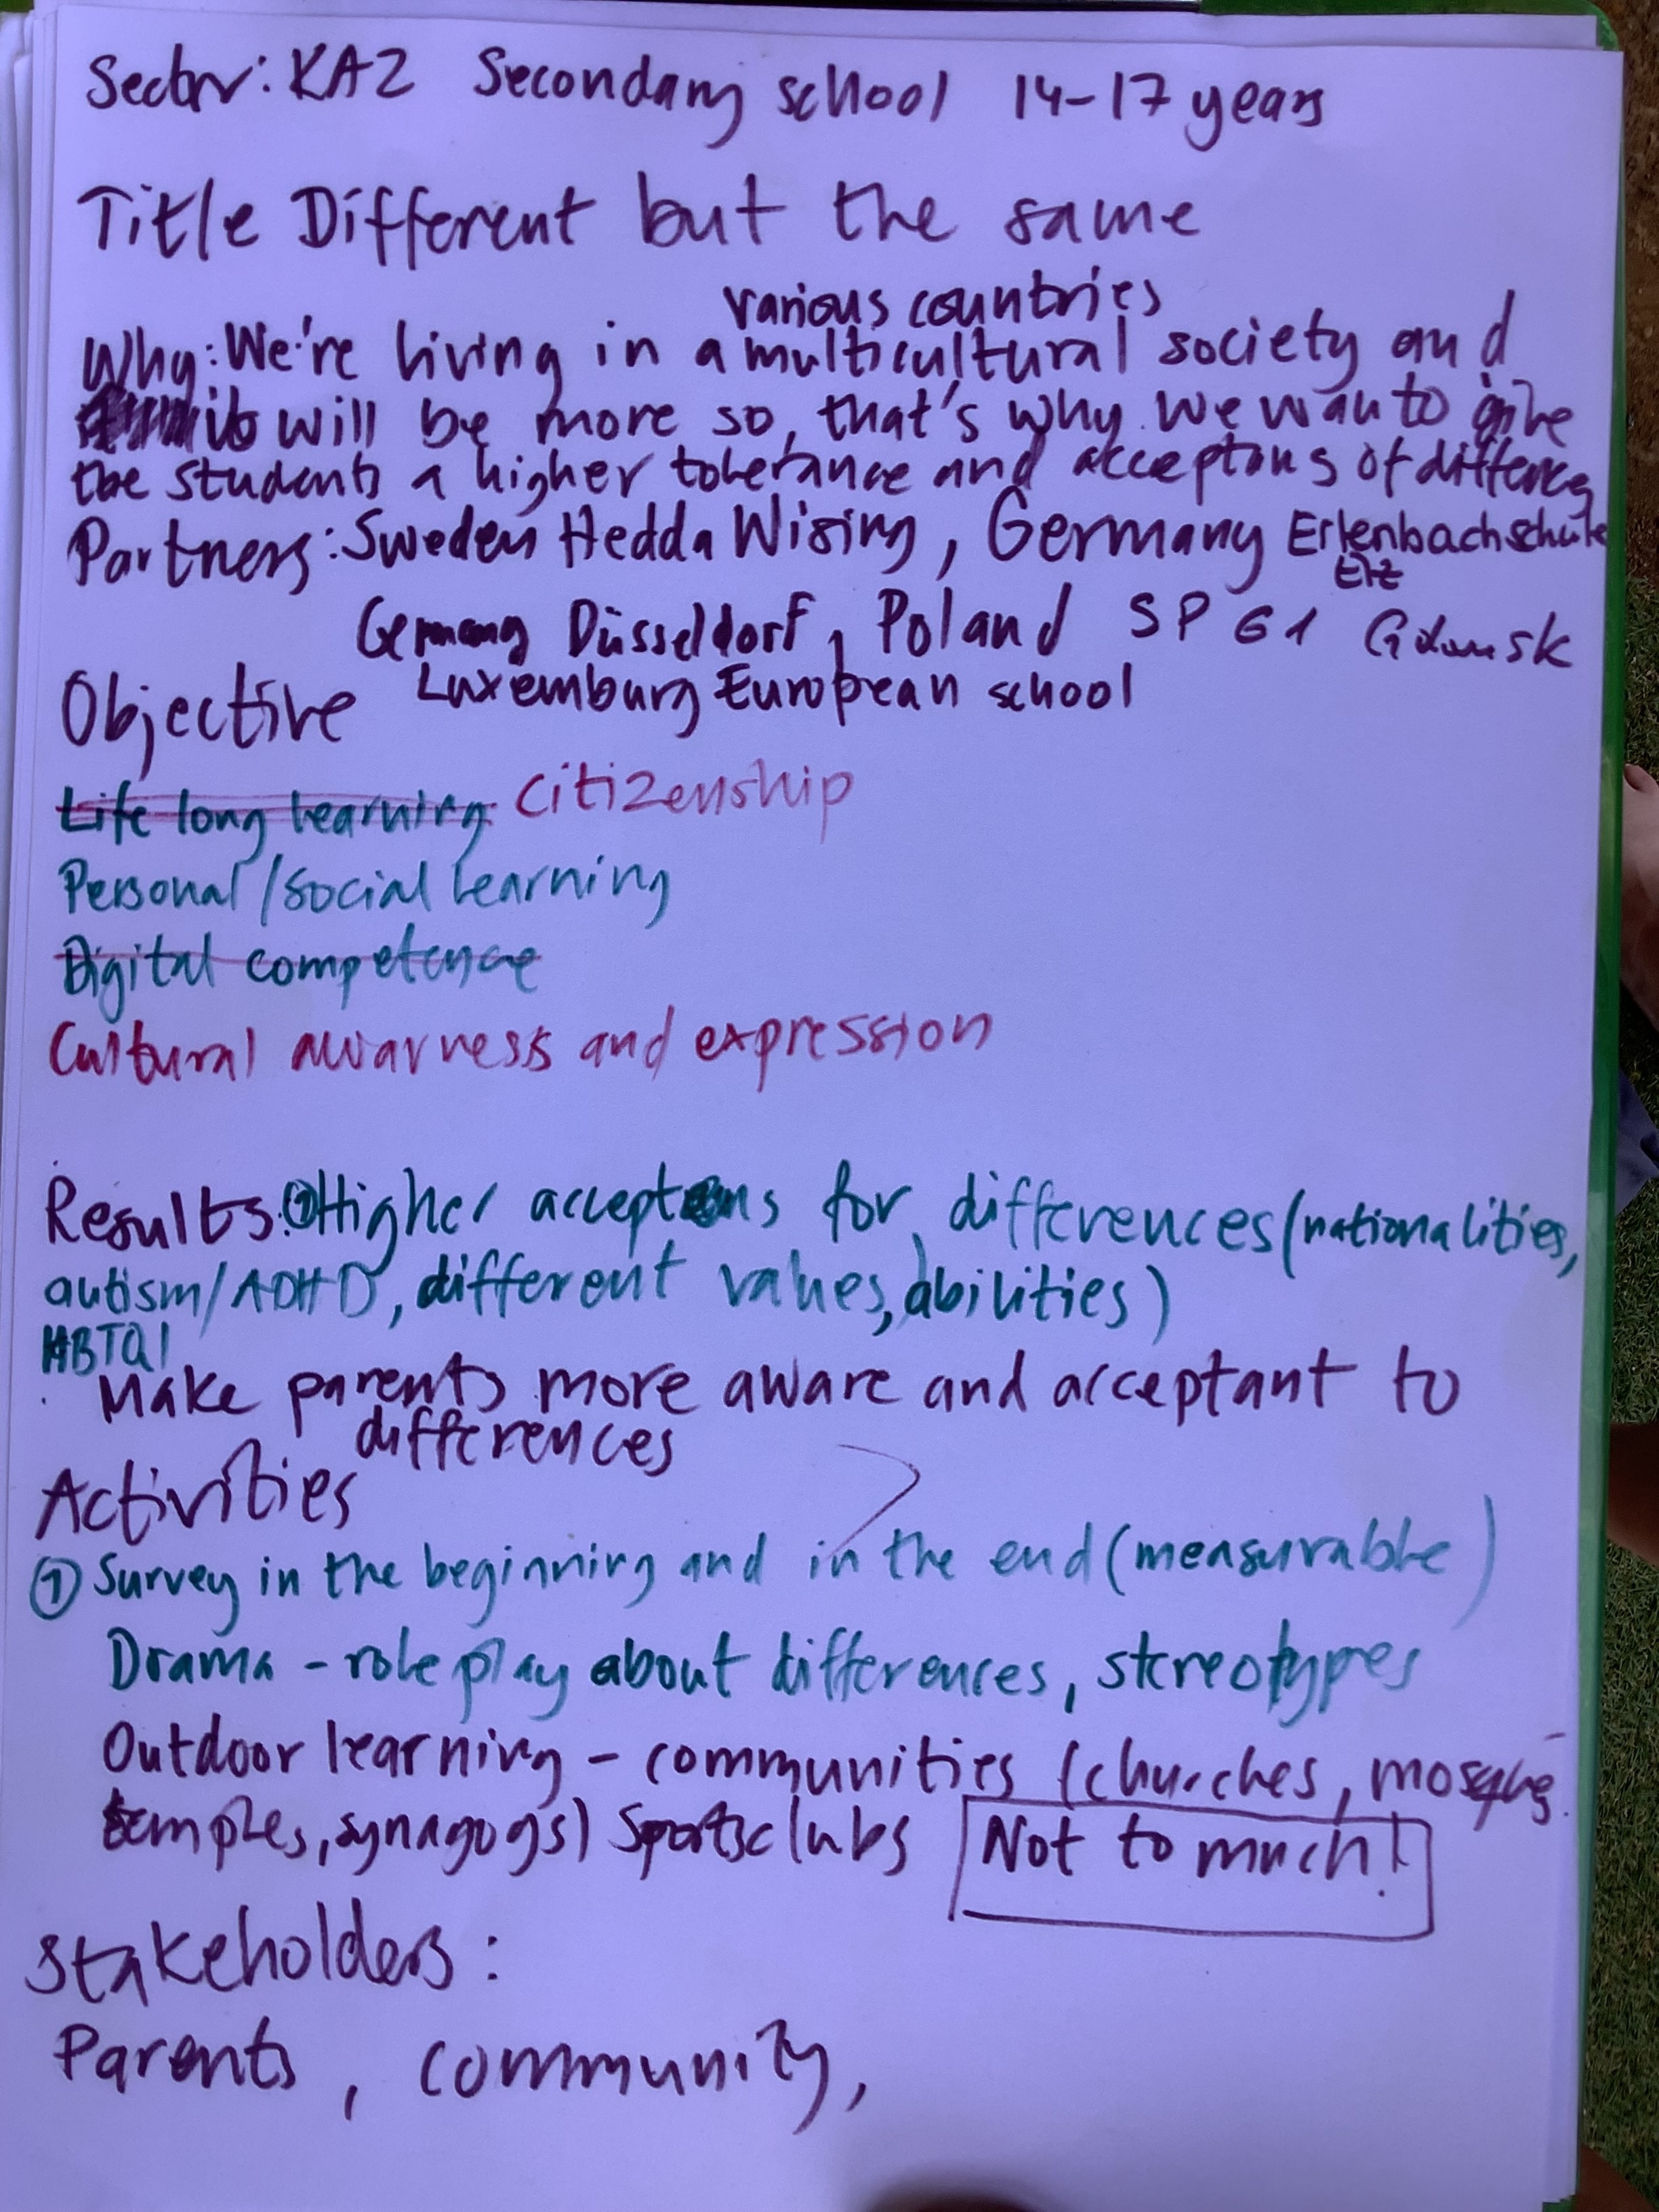 Sector: KA2 Secondary school 14-17 years
Title Different but the same
various countries
Why: We're living in a multicultural society and
it will be more so, that's why we wan to give
the students a higher tolerance and acceptons of differences
Partners: Sweden Hedda Wising, Germany Erlenbachschule
Elz
Germany Düsseldorf, Poland SP 61 Gdansk
Luxemburg European school
Objective
Life long learning Citizenship
Personal/social learning
Digital competence
Cultural awarness and expression
Results: ① Higher acceptens for differences (nationalities,
autism/ADHD, different values, abilities)
HBTQI
Make parents more aware and acceptant to
differences
Activities
① Survey in the beginning and in the end (measurable)
Drama - role play about differences, stereotypes
Outdoor learning - communities (churches, mosques
temples, synagogs) Sportsclubs Not to much!
Stakeholders:
Parents, community,